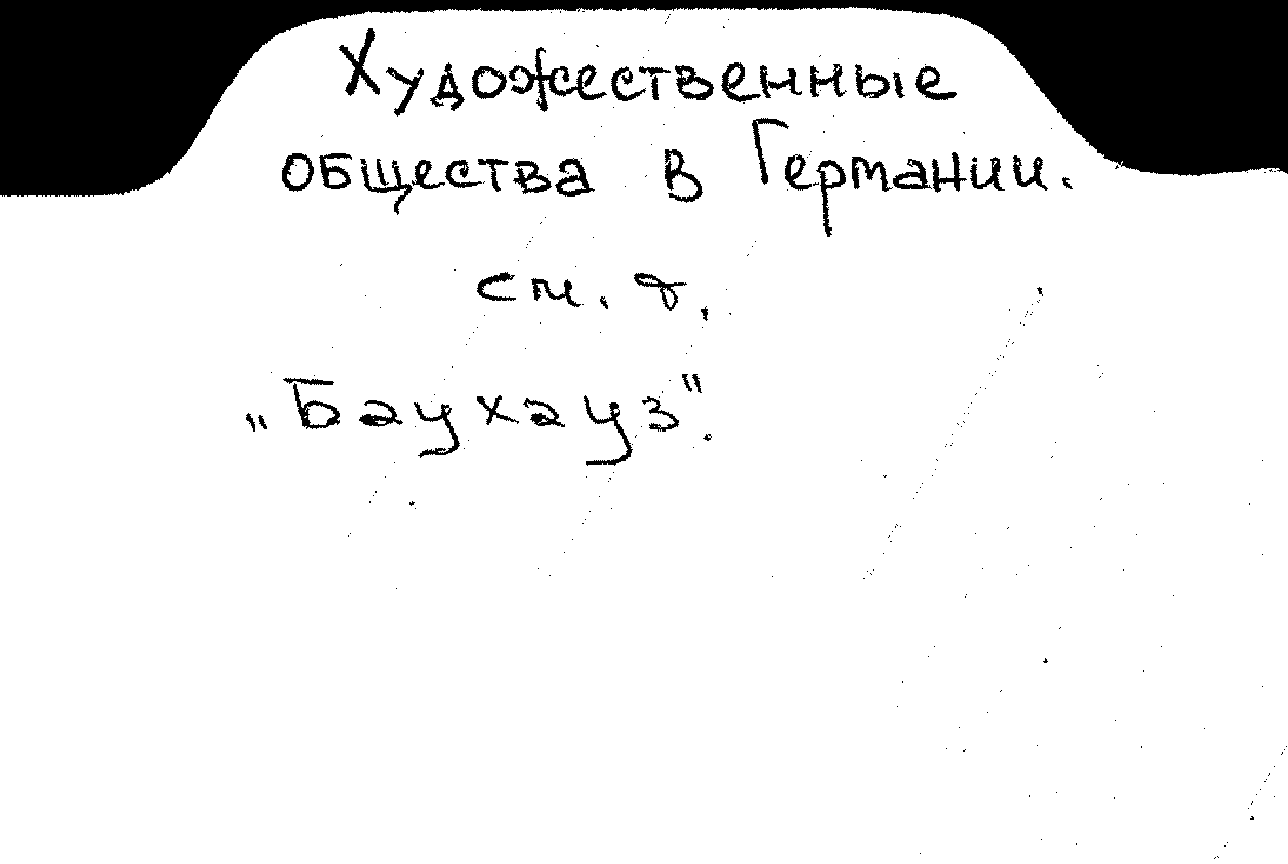 Художественные
общества в Германии.
см.
„Баухауз".